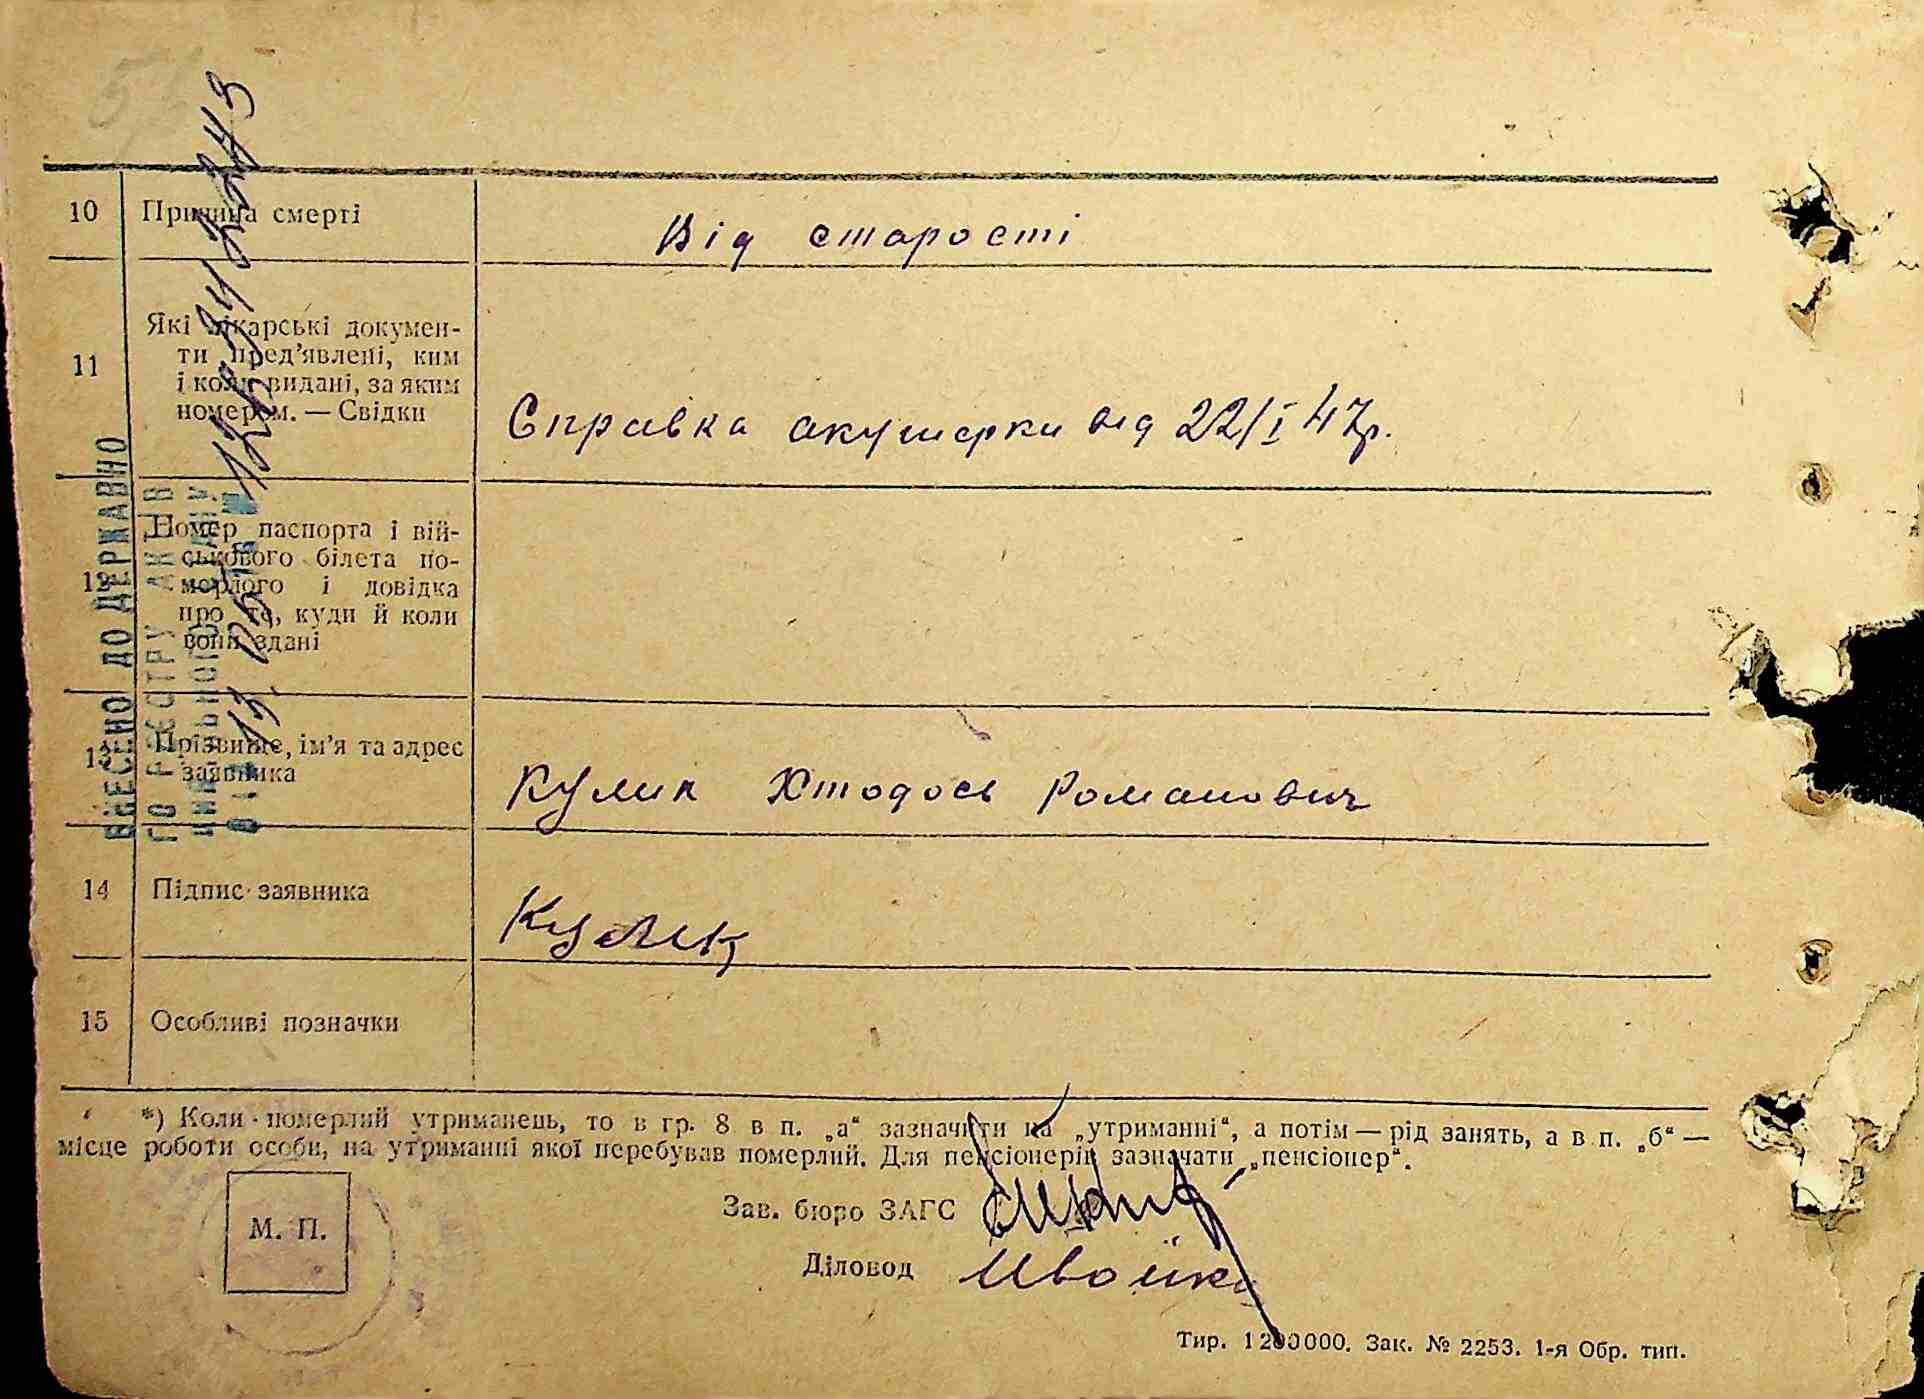 10 Причина смерті Від старості
11 Які лікарські докумен-
ти пред'явлені, ким
і коли видані, за яким
номером. — Свідки
Справка акушерки від 22/I 47р.
12 Номер паспорта і вій-
ськового білета по-
мерлого і довідка
про те, куди й коли
вони здані
13 Прізвище, ім'я та адрес
заявника
Кулик Хтодось Романович
14 Підпис заявника Кулик
15 Особливі позначки
*) Коли померлий утриманець, то в гр. 8 в п. „а“ зазначити на „утриманні“, а потім — рід занять, а в п. „б“ —
місце роботи особи, на утриманні якої перебував померлий. Для пенсіонерів зазначати „пенсіонер“.
М. П.
Зав. бюро ЗАГС
Діловод
Тир. 1200000. Зак. № 2253. 1-я Обр. тип.
ВНЕСЕНО ДО ДЕРЖАВНО
ГО РЕЄСТРУ АКТІВ
ЦИВІЛЬНОГО СТАНУ